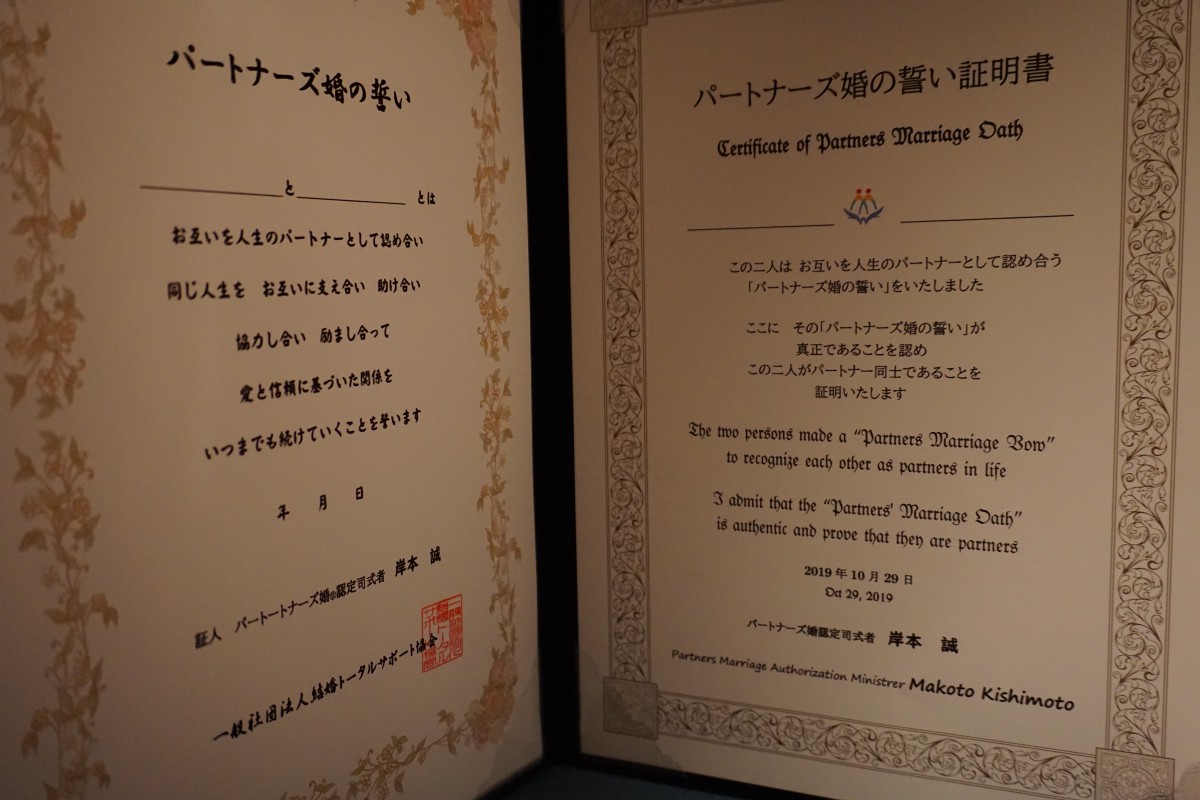 パートナーズ婚の誓い
と とは
お互いを人生のパートナーとして認め合い
同じ人生を お互いに支え合い 助け合い
協力し合い 励まし合って
愛と信頼に基づいた関係を
いつまでも続けていくことを誓います
年 月 日
証人 パートートナーズ婚®認定司式者 岸本 誠
一般社団法人結婚トータルサポート協会
パートナーズ婚の誓い証明書
Certificate of Partners Marriage Oath
この二人は お互いを人生のパートナーとして認め合う
「パートナーズ婚の誓い」をいたしました
ここに その「パートナーズ婚の誓い」が
真正であることを認め
この二人がパートナー同士であることを
証明いたします
The two persons made a “Partners Marriage Vow”
to recognize each other as partners in life
I admit that the “Partners' Marriage Oath”
is authentic and prove that they are partners
2019 年 10 月 29 日
Oct 29, 2019
パートナーズ婚認定司式者 岸本 誠
Partners Marriage Authorization Ministrer Makoto Kishimoto